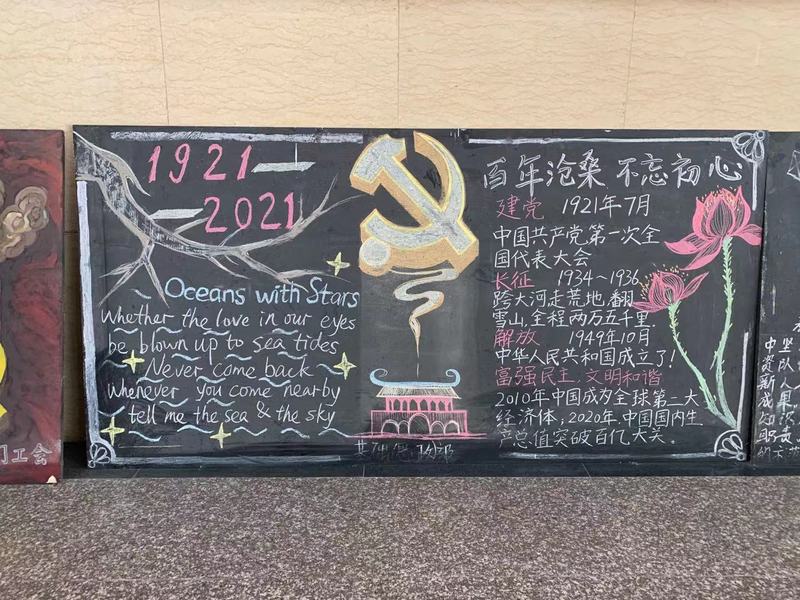 1921—
—2021
Oceans with Stars
Whether the love in our eyes
be blown up to sea tides
Never come back
whenever you come nearby
tell me the sea & the sky
百年沧桑 不忘初心
建党 1921年7月
中国共产党第一次全
国代表大会
长征 1934~1936
跨大河走荒地,翻
雪山,全程两万五千里.
解放 1949年10月
中华人民共和国成立了!
富强民主,文明和谐
2010年中国成为全球第二大
经济体;2020年,中国国内生
产总值突破百亿大关。
工会